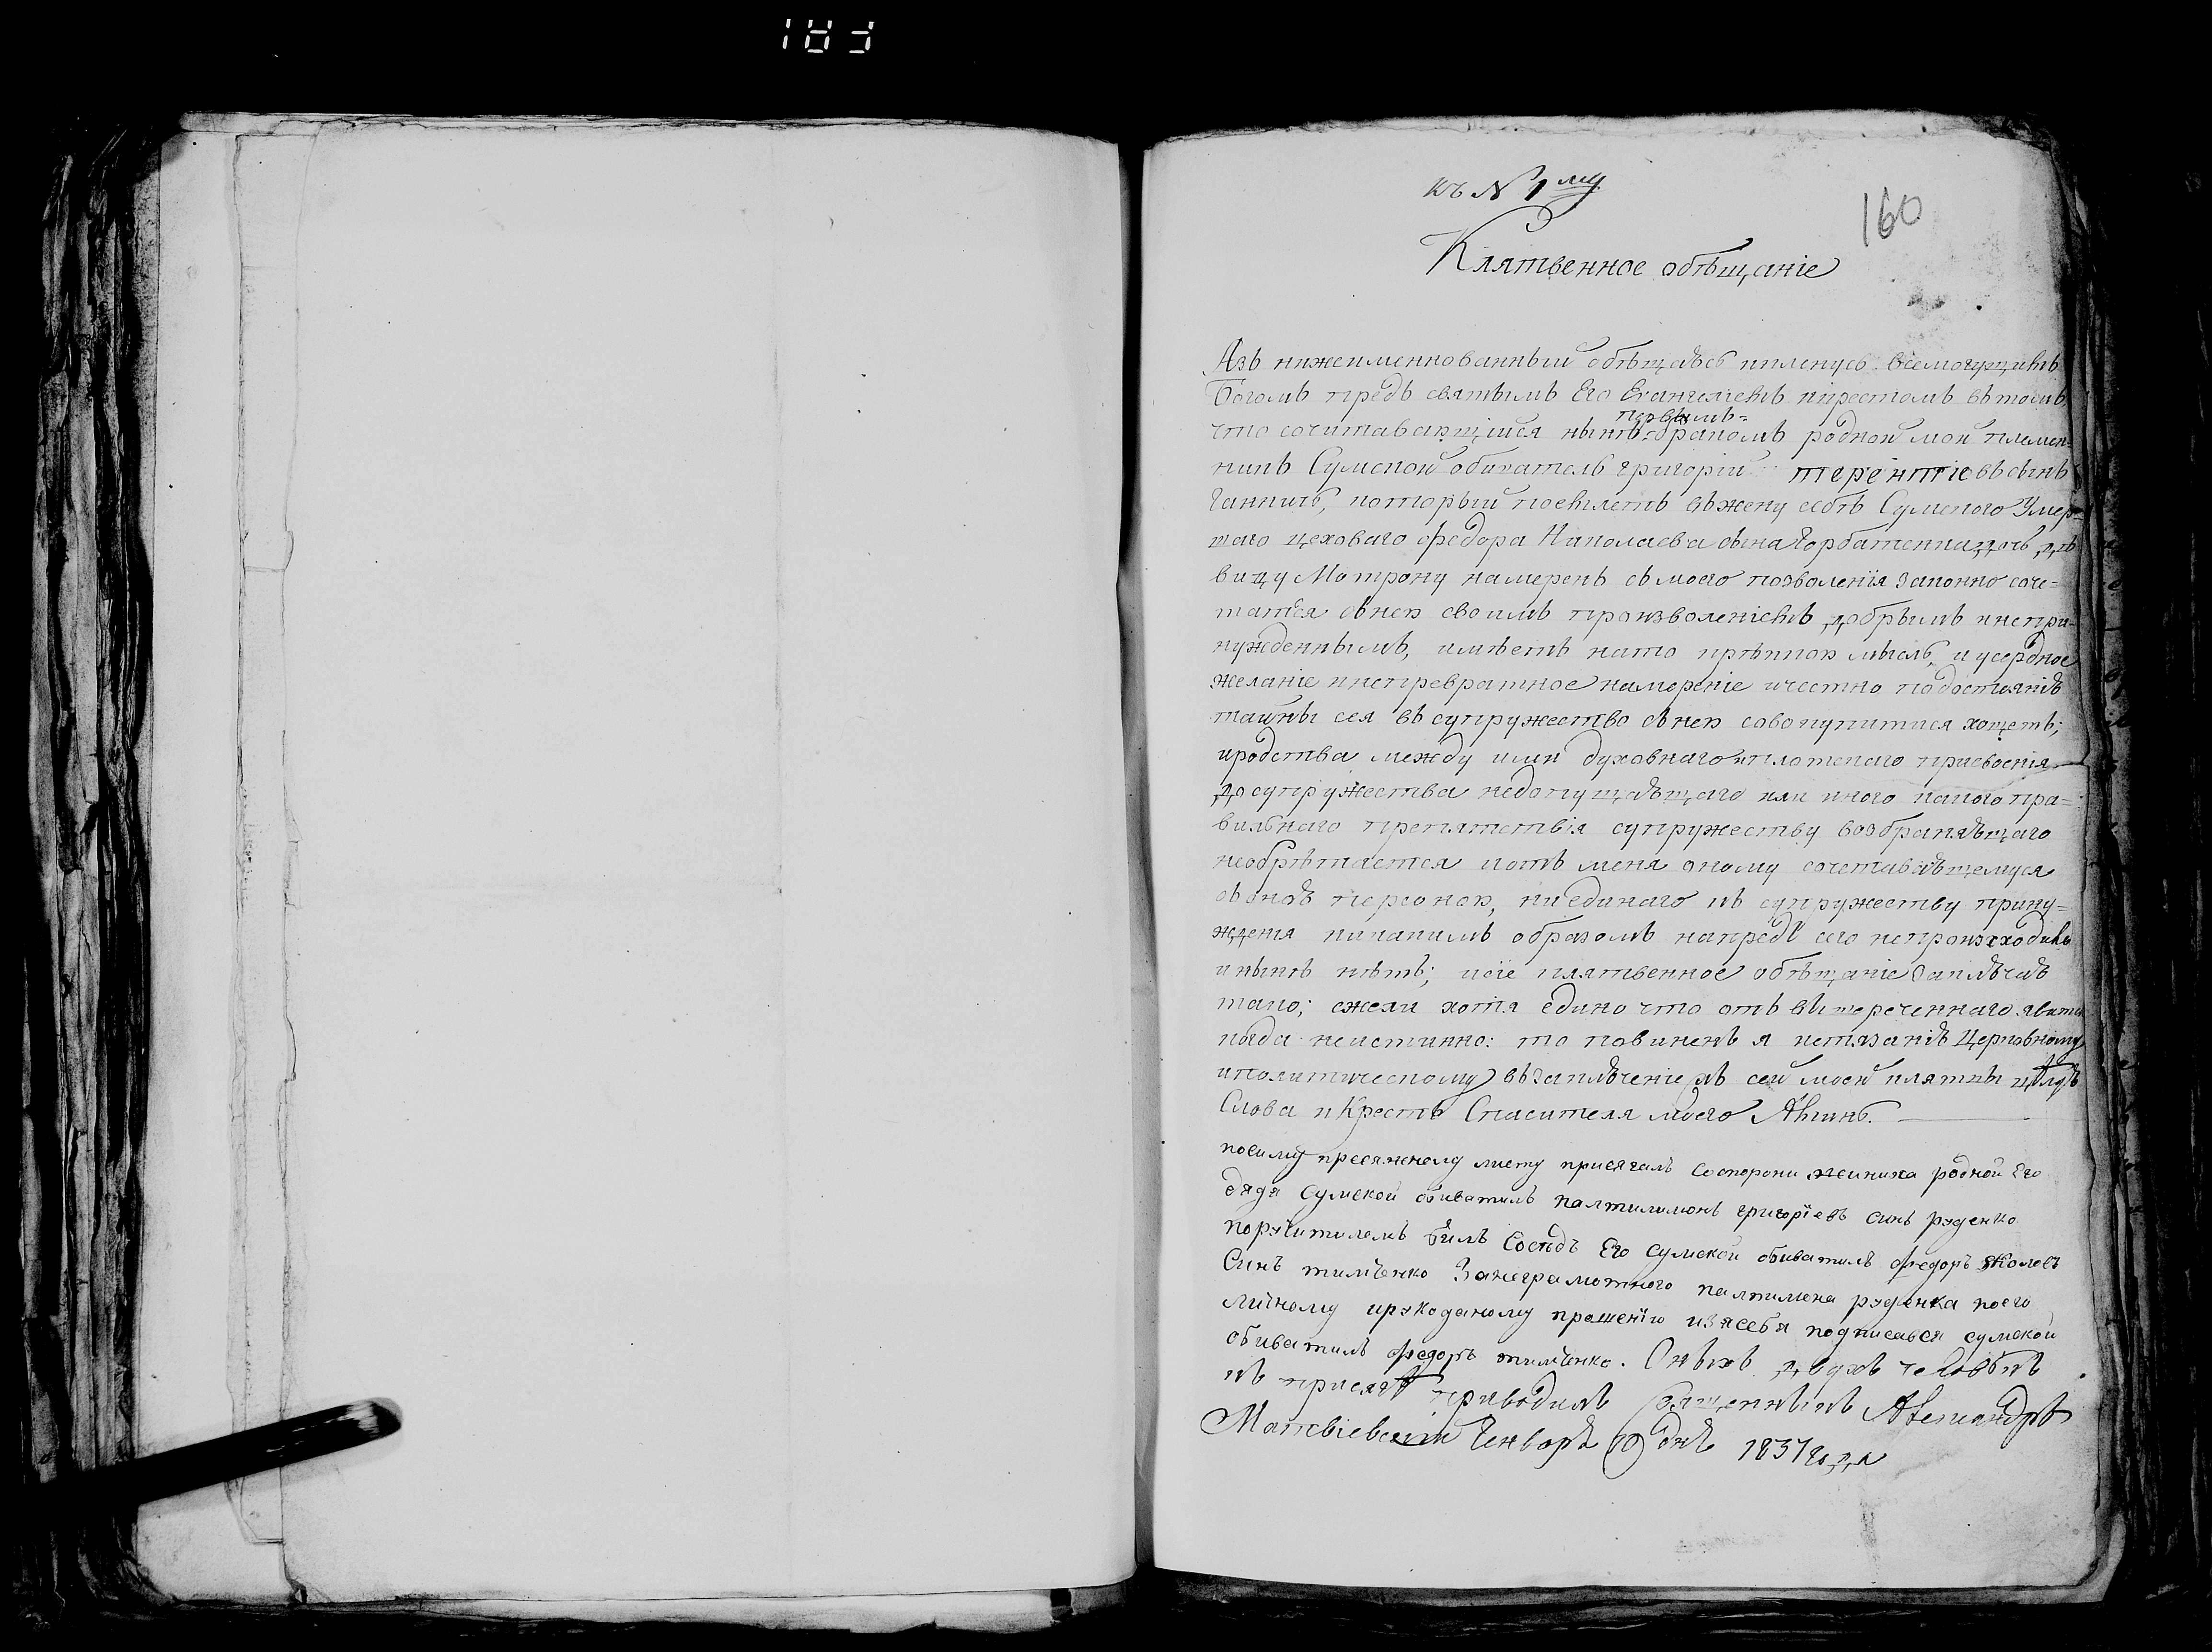 183
къ № 1му
160
Клятвенное обѣщаніе
Азъ нижеименнованный обѣщаюсь икленусь всемогущимъ
Богомъ предъ святымъ Его Евангеліемъ икрестомъ въ томъ,
первымъ=
что сочитавающійся нынѣ бракомъ родной мой племен=
никъ Сумской обиватель григорій терентіевъ сынъ
который поемлетъ въжену себѣ Сумского Умер=
шаго цеховаго федора Николаева сына Горбатенка дочь дѣ
вицу Мотрону намеренъ съ моего позволенія законно соче=
татся снею своимъ произволеніемъ, добрымъ инепри=
нужденнымъ, имѣетъ нато крѣпкою мысль, и усердное
желаніе инепревратное намереніе ичестно подостоянію
тайны сея въ супружество снею совокупитися хощетъ;
иродства между ими духовнаго иплотскаго присвоенія
до супружества недопущающаго или иного какого пра=
вильнаго препятствія супружеству возбраняющаго
необрѣтается иотъ меня оному сочетавающемуся
съ оною персоною, ниединаго къ супружеству прину=
ждения никакимъ образомъ напредъ сего непроизходило
и нынѣ нѣтъ; исіе клятвенное обѣщаніе заключаю
тако; ежели хотя едино что отъ вышереченнаго явитъ
когда неистинно: то повиненъ я истязанію Церковному
иполитическому въ заключеніе къ сей моей клятвы цѣлую
Слова и Крестъ Спасителя моего Аминь.
посиму пресяжному листу присягалъ состорони жениха родной Его
дядя сумской обиватиль палтилимонъ григорїевъ синъ руденко
поручитилемъ билъ Соседъ Его сумской обиватиль федоръ яколевъ
Синъ тимченко Занеграмотного палтимона руденка поего
личному ирукоданому прошенїю изасебя подписався сумской
обиватиль федоръ тимченко. Оныхъ двухъ человѣкъ
къ присягѣ приводилъ Священникъ Александръ
Матвіевскій Генваря 19 дня 1837 года